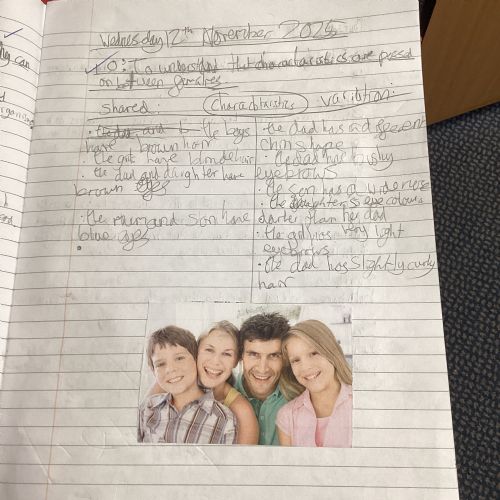 Wednesday 12th November 2025
LO: To understand that characteristics are passed
on between
Shared: Characteristic variation:
• the dad and the boys
have brown hair
the girls have blonde hair
• the dad and daughter have
brown eyes
• the mum and son have
blue eyes
•
• the dad has a different
chin shape
• the dad has bushy
eyebrows
• the son has a wide nose
• the daughters eye colour is
darter than her dad
• the girl has very light
eyebrows
• the dad has slightly curly
hair
can